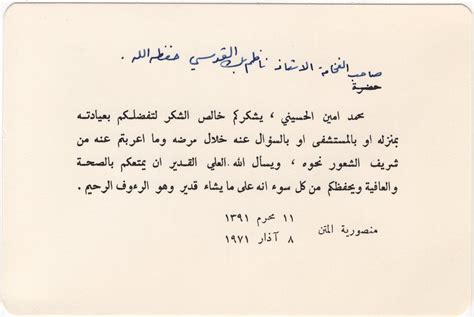 صاحب الفخامة الاستاذ ناظم بك القدسي حفظه الله .
حضرة
محمد امين الحسيني ، يشكركم خالص الشكر لتفضلكم بعيادته
بمنزله او بالمستشفى او بالسؤال عنه خلال مرضه وما اعربتم عنه من
شريف الشعور نحوه ، ويسأل الله العلي القدير ان يمتعكم بالصحة
والعافية ويحفظكم من كل سوء انه على ما يشاء قدير وهو الرءوف الرحيم .
١١ محرم ١٣٩١
منصورية المتن
٨ آذار ١٩٧١